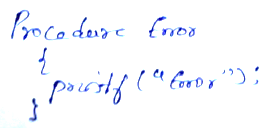 Procedure Error
{
printf ("Error");
}